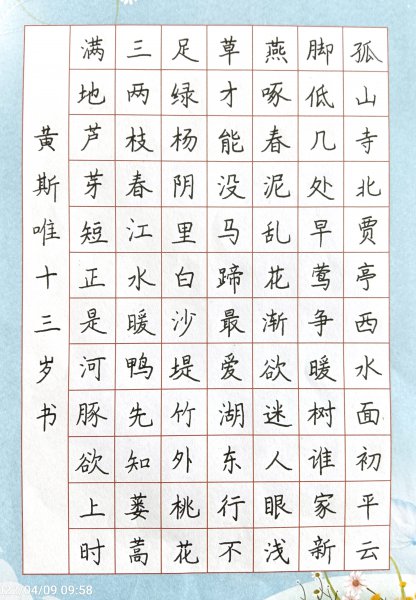 孤山寺北贾亭西水面初平云
脚低几处早莺争暖树谁家新
燕啄春泥乱花渐欲迷人眼浅
草才能没马蹄最爱湖东行不
足绿杨阴里白沙堤竹外桃花
三两枝春江水暖鸭先知蒌蒿
满地芦芽短正是河豚欲上时
黄斯唯十三岁书
/04/09 09:58